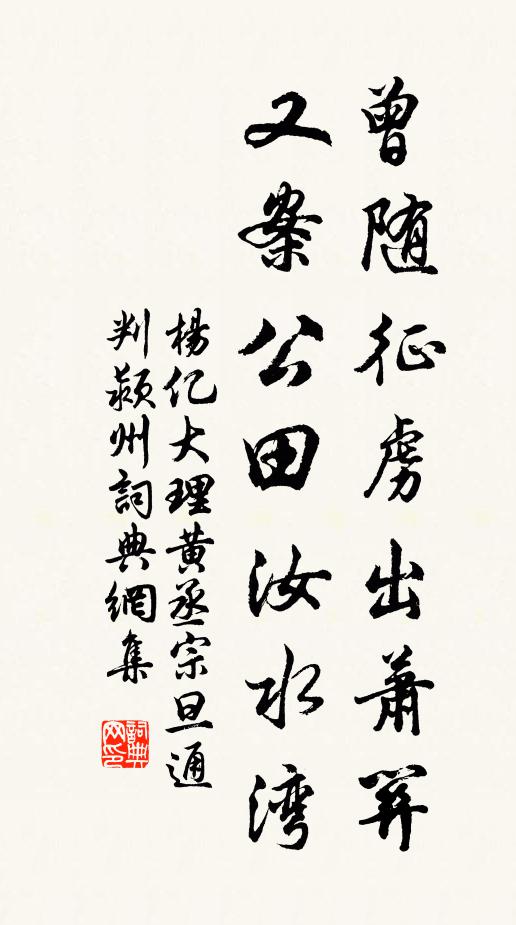 曾随征虏出萧关
又案公田汝水湾
楊亿大理黄丞宗旦通
判颍州詞典網集
詞典網印